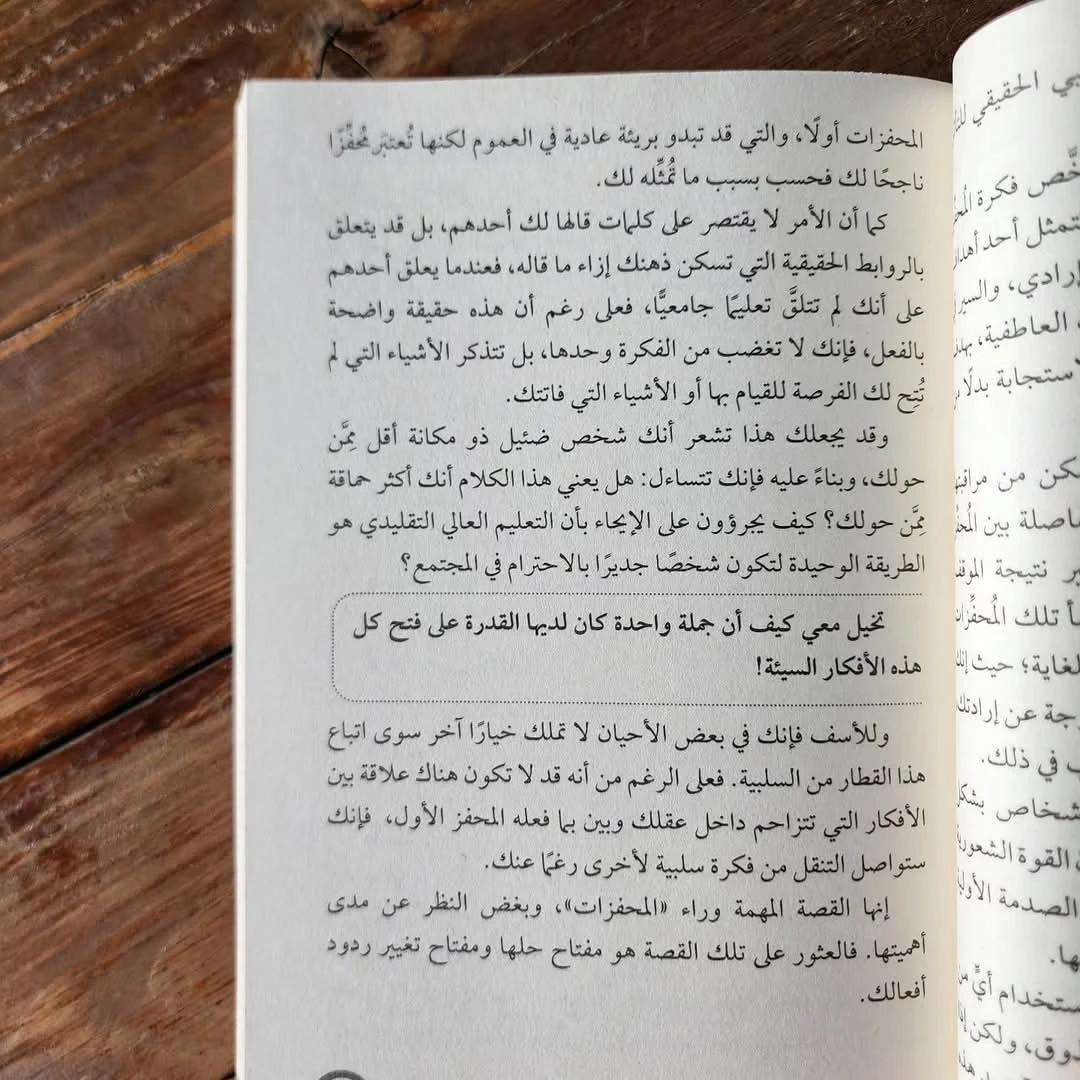 المحفزات أولًا، والتي قد تبدو بريئة عادية في العموم لكنها تُعتبَر مُحفِّزًا
ناجحًا لك فحسب بسبب ما تُمُثِّله لك.
كما أن الأمر لا يقتصر على كلمات قالها لك أحدهم، بل قد يتعلق
بالروابط الحقيقية التي تسكن ذهنك إزاء ما قاله، فعندما يعلق أحدهم
على أنك لم تتلقَّ تعليمًا جامعيًّا، فعلى رغم أن هذه حقيقة واضحة
بالفعل، فإنك لا تغضب من الفكرة وحدها، بل تتذكر الأشياء التي لم
تُتِح لك الفرصة للقيام بها أو الأشياء التي فاتتك.
وقد يجعلك هذا تشعر أنك شخص ضئيل ذو مكانة أقل مِمَّن
حولك، وبناءً عليه فإنك تتساءل: هل يعني هذا الكلام أنك أكثر حماقة
مِمَّن حولك؟ كيف يجرؤون على الإيحاء بأن التعليم العالي التقليدي هو
الطريقة الوحيدة لتكون شخصًا جديرًا بالاحترام في المجتمع؟
تخيل معي كيف أن جملة واحدة كان لديها القدرة على فتح كل
هذه الأفكار السيئة!
وللأسف فإنك في بعض الأحيان لا تملك خيارًا آخر سوى اتباع
هذا القطار من السلبية. فعلى الرغم من أنه قد لا تكون هناك علاقة بين
الأفكار التي تتزاحم داخل عقلك وبين بما فعله المحفز الأول، فإنك
ستواصل التنقل من فكرة سلبية لأخرى رغمًا عنك.
إنها القصة المهمة وراء «المحفزات»، وبغض النظر عن مدى
أهميتها. فالعثور على تلك القصة هو مفتاح حلها ومفتاح تغيير ردود
أفعالك.
الحقيقي
فكرة
تمثل أحد
إرادي، والسير
العاطفية،
من مراقبتها
بين
نتيجة الموقف
تلك المُحفِّزات
للغاية؛ حيث إنك
عن إرادتك
في ذلك.
بشكل
القوة الشعورية
الصدمة
أيٍّ
ولكن